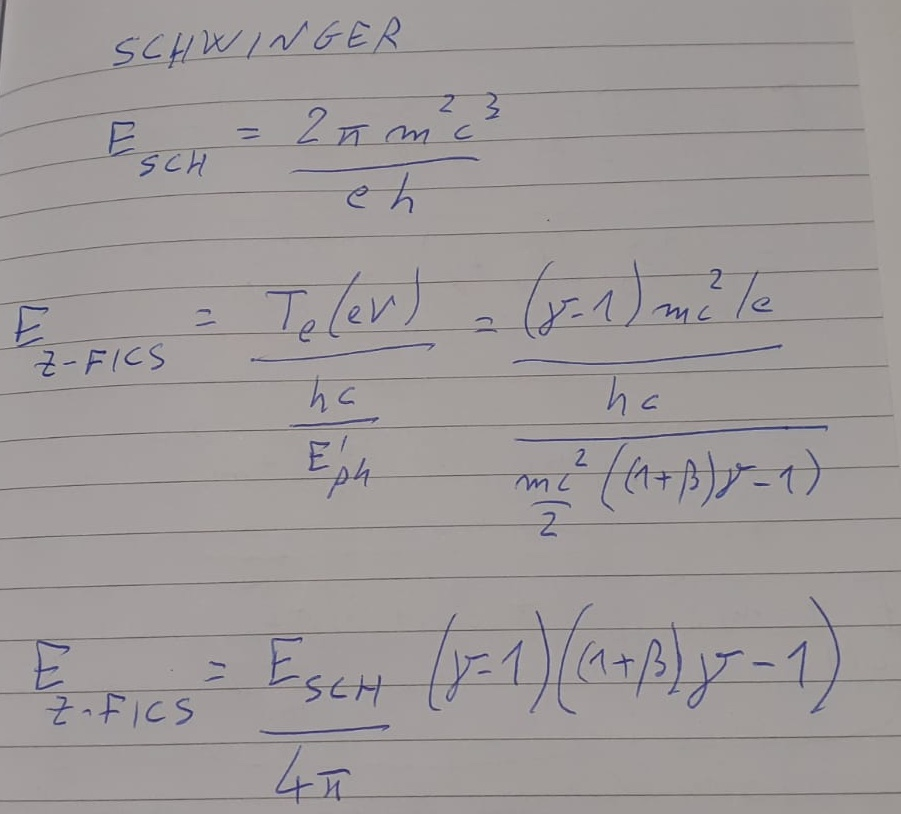 SCHWINGER
E_SCH = 2π m²c³ / eh
E_Z-FICS = Te(eV) / (hc / E'ph) = (γ-1) mc²/e / (hc / (mc²/2 ((1+β)γ-1)))
E_Z-FICS = E_SCH / 4π (γ-1)((1+β)γ-1)